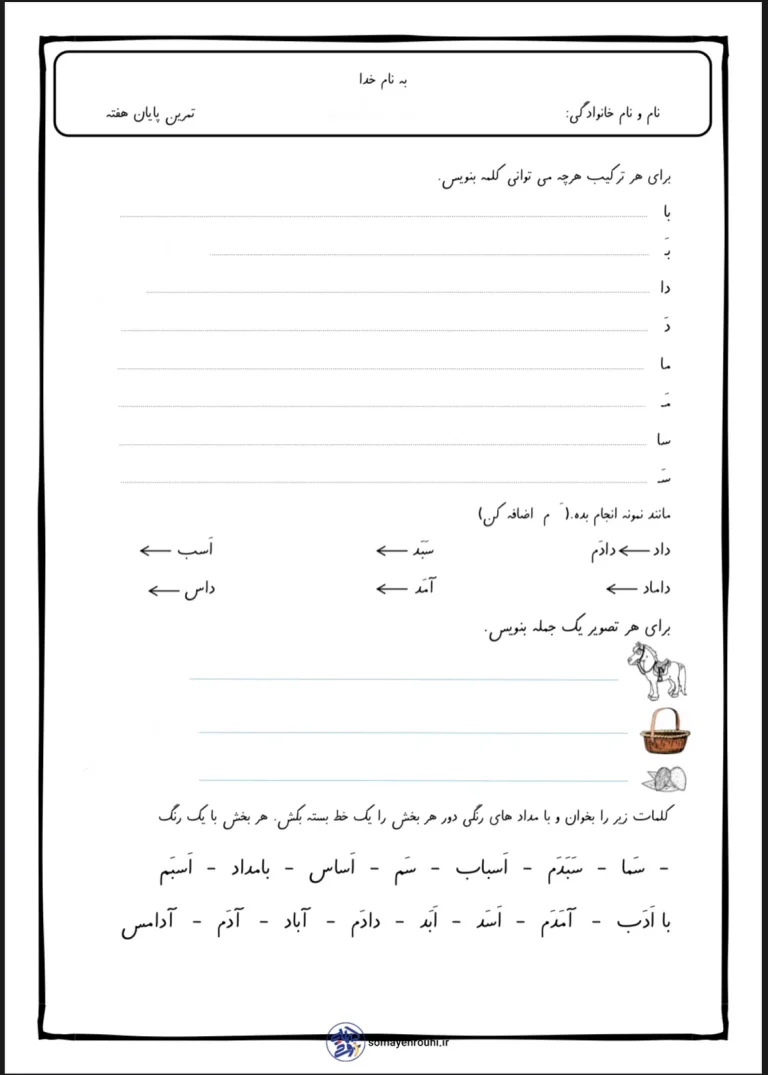 به نام خدا
نام و نام خانوادگی: تمرین پایان هفته
برای هر ترکیب هرچه می توانی کلمه بنویس.
با
بَـ
دا
دَ
ما
مَـ
سا
سَـ
مانند نمونه انجام بده.( َ م اضافه کن)
داد ← دادَم سَبَد ← اَسب ←
داماد ← آمَد ← داس ←
برای هر تصویر یک جمله بنویس.
کلمات زیر را بخوان و با مداد های رنگی دور هر بخش را یک خط بسته بکش. هر بخش با یک رنگ
- سَما - سَبَدَم - اَسباب - سَم - اَساس - بامداد - اَسبَم
با اَدَب - آمَدَم - اَسَد - اَبَد - دادَم - آباد - آدَم - آدامس
somayehrouhi.ir